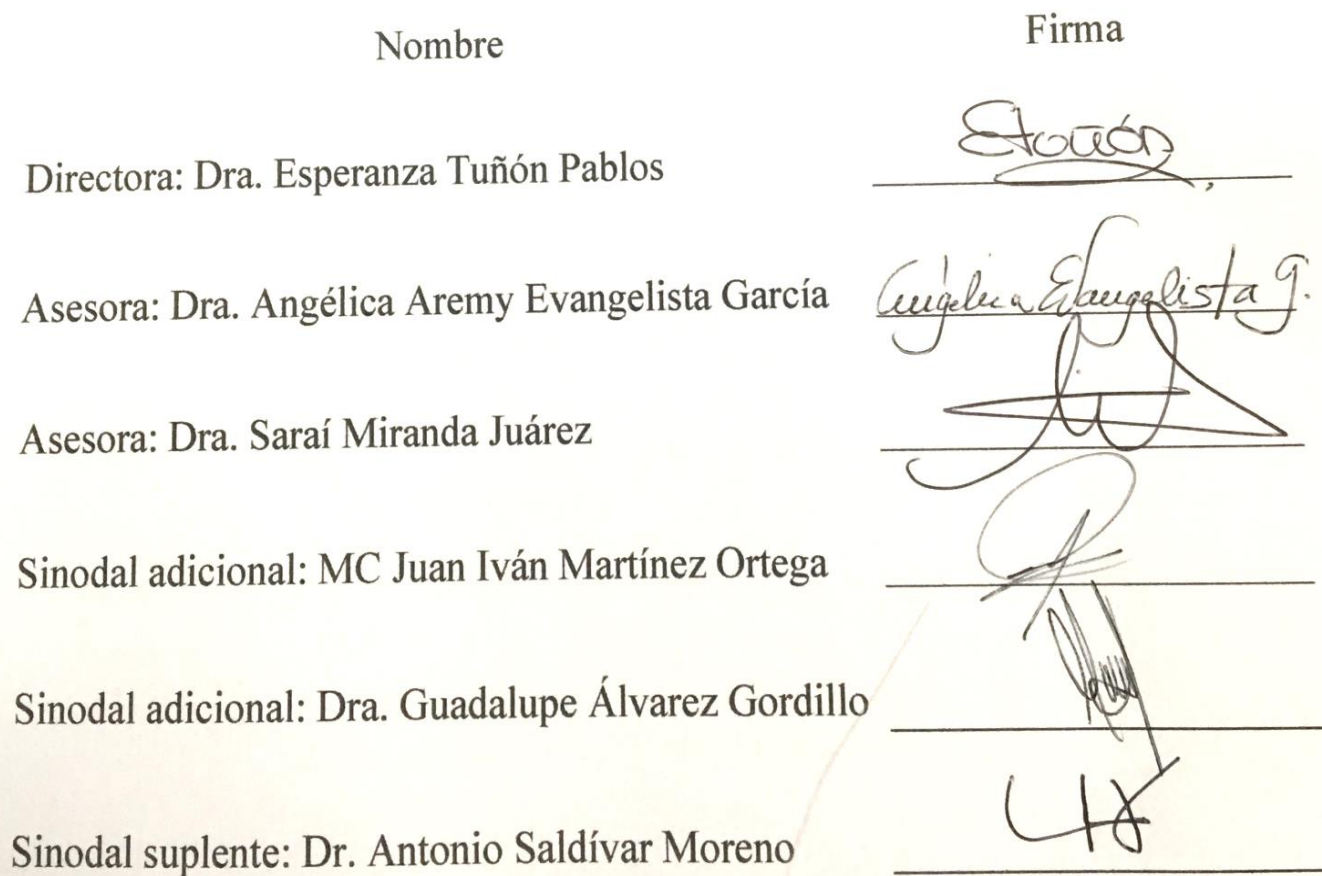 Nombre Firma
Directora: Dra. Esperanza Tuñón Pablos
Asesora: Dra. Angélica Aremy Evangelista García Angélica Evangelista G.
Asesora: Dra. Saraí Miranda Juárez
Sinodal adicional: MC Juan Iván Martínez Ortega
Sinodal adicional: Dra. Guadalupe Álvarez Gordillo
Sinodal suplente: Dr. Antonio Saldívar Moreno